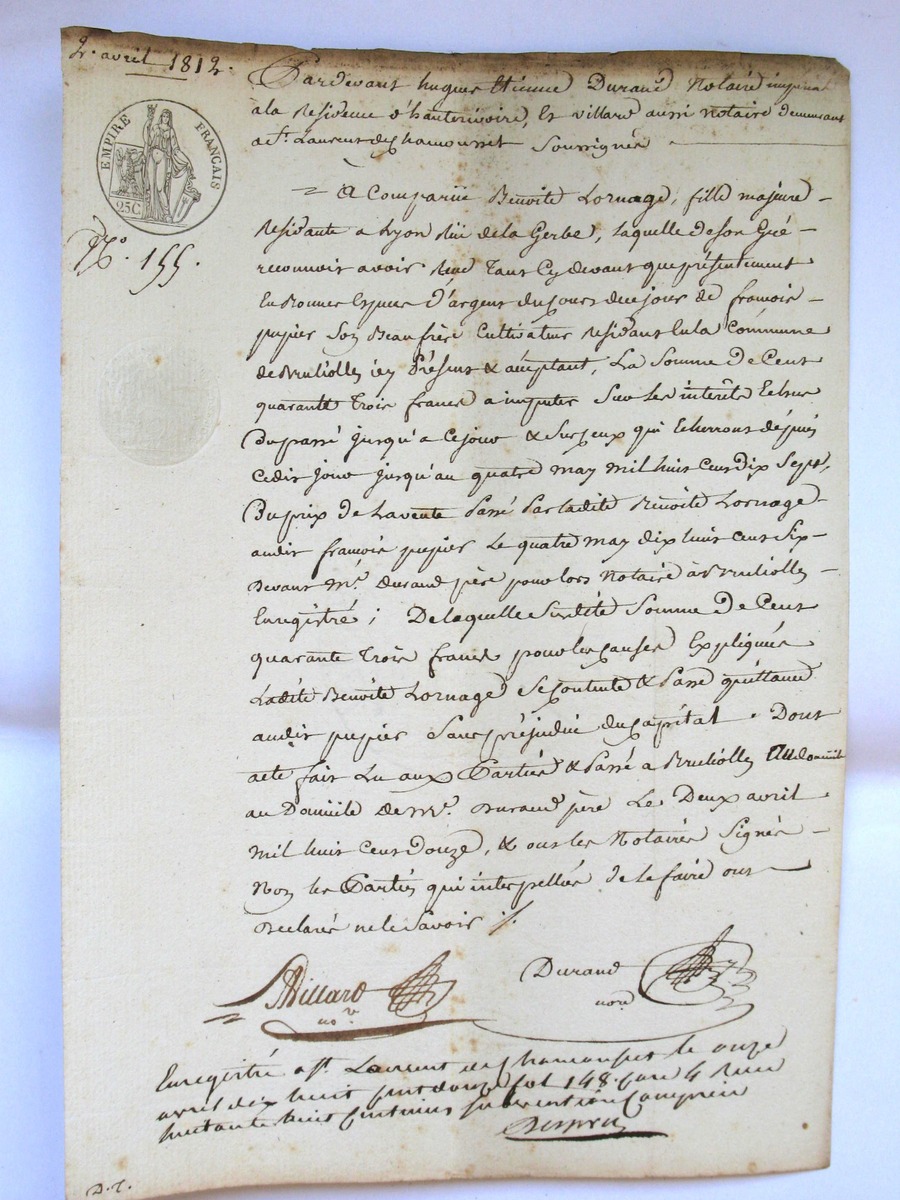 2. avril 1812.
Pardevant hugues Etienne Durand Notaire impérial
a la Residence d'hauterivoire, Et Villard aussi Notaire demeurant
a St. Laurent de Chamousset Soussignés
EMPIRE FRANÇAIS
25C
N°. 155.
= A Comparüe Benoite Lornage, fille majeure
Residante a Lyon Rüe de la Gerbe, Laquelle de son Gré
reconnoit avoir Reçu Tant Cy devant que présentement
En Bonnes Especes d'argent du jours de francois
pupier Son Beaufrère Cultivateur residant En la Commune
de Brulliolles icy Présent & acceptant, La Somme de Cent
quarante Trois francs a imputer Sur Les interêts Echus
Du passé jusqu'a ce jour & Sur ceux qui Echerront dépuis
Cedit jour jusqu'au quatre may mil huit Cent Dix Sept,
Du prix de La vente Passé Par ladite Benoite Lornage
audit francois pupier Le quatre may dix huit cent Six
Devant Me. Durand père pour lors Notaire à Brulliolles
Enregistré ; De laquelle Susdite Somme de Cent
quarante Trois francs pour les causes Expliquées
Ladite Benoite Lornage Se Contente & Passe quittance
audit pupier Sans préjudice du Capital. Dont
acte fait Lu aux Parties & Passé a Brulliolles
au Domicile de Me. Durand père Le Deux avril
mil huit Cent Douze, & ont les Notaires Signés
Non les Parties qui interpellées de le faire ont
Declarés ne le Savoir ./.
Villard
nore
Durand
nore
Enregistré a St. Laurent de Chamousset le onze
avril dix huit cent douze fol 148 case 4 Recu
Subvention Comprise
D. 7.